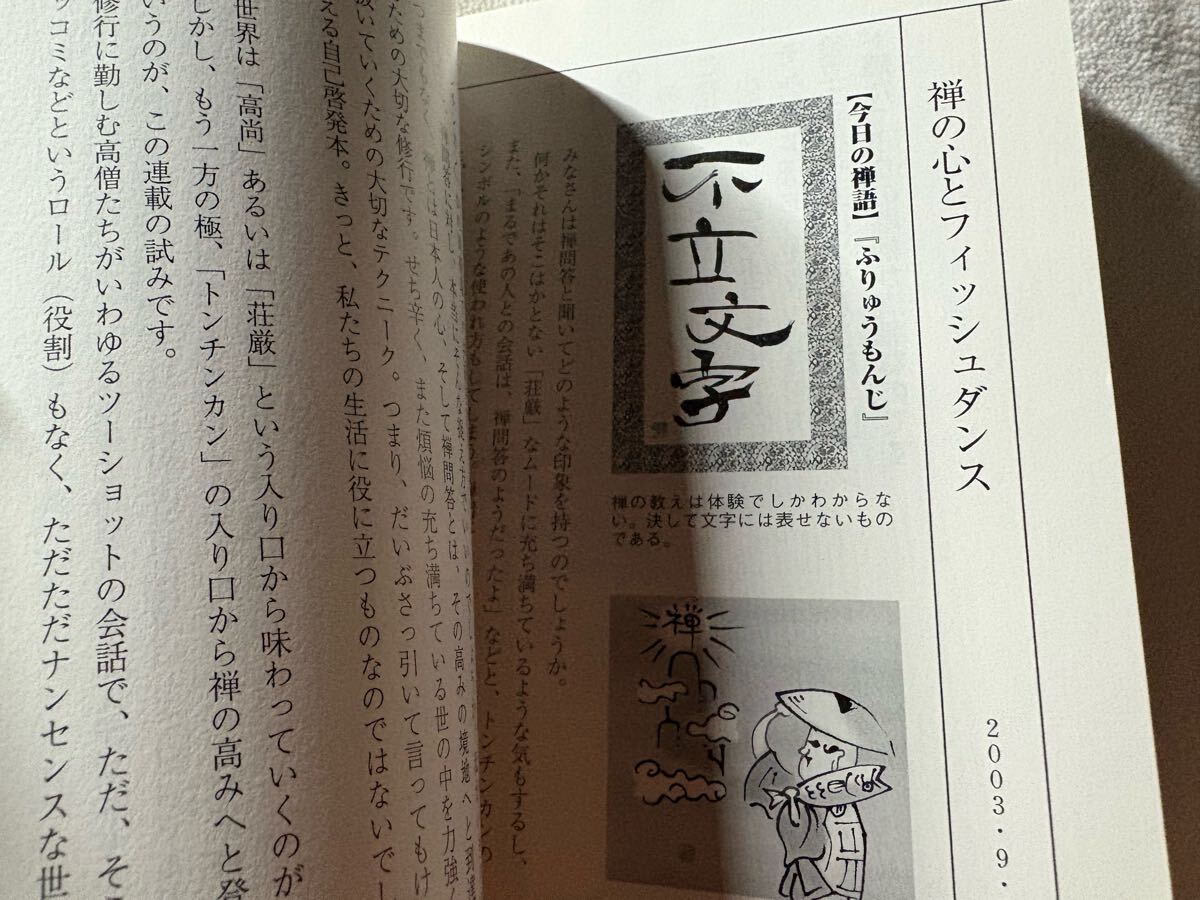 禅の心とフィッシュダンス
2003・9・
【今日の禅語】『ふりゅうもんじ』
不立文字
禅の教えは体験でしかわからな
い。決して文字には表せないもの
である。
禅
みなさんは禅問答と聞いてどのような印象を持つのでしょうか。
何かそれはそこはかとない「荘厳」なムードに充ち満ちているような気もするし、
また、「まるであの人との会話は、禅問答のようだったよ」などと、トンチンカンの
シンボルのような使われ方もしてしまう
禅とは日本人の心、そして禅問答とは、その高みの境地へと到達
つまでもな
ための大切な修行です。せち辛く、また煩悩の充ち満ちている世の中を力強く
抜いていくための大切なテクニーク。つまり、だいぶさっ引いて言ってもけ
える自己啓発本。きっと、私たちの生活に役に立つものなのではないでし
世界は「高尚」あるいは「荘厳」という入り口から味わっていくのが
しかし、もう一方の極、「トンチンカン」の入り口から禅の高みへと登
いうのが、この連載の試みです。
修行に勤しむ高僧たちがいわゆるツーショットの会話で、ただ、そ
ッコミなどというロール（役割）もなく、ただただナンセンスな世